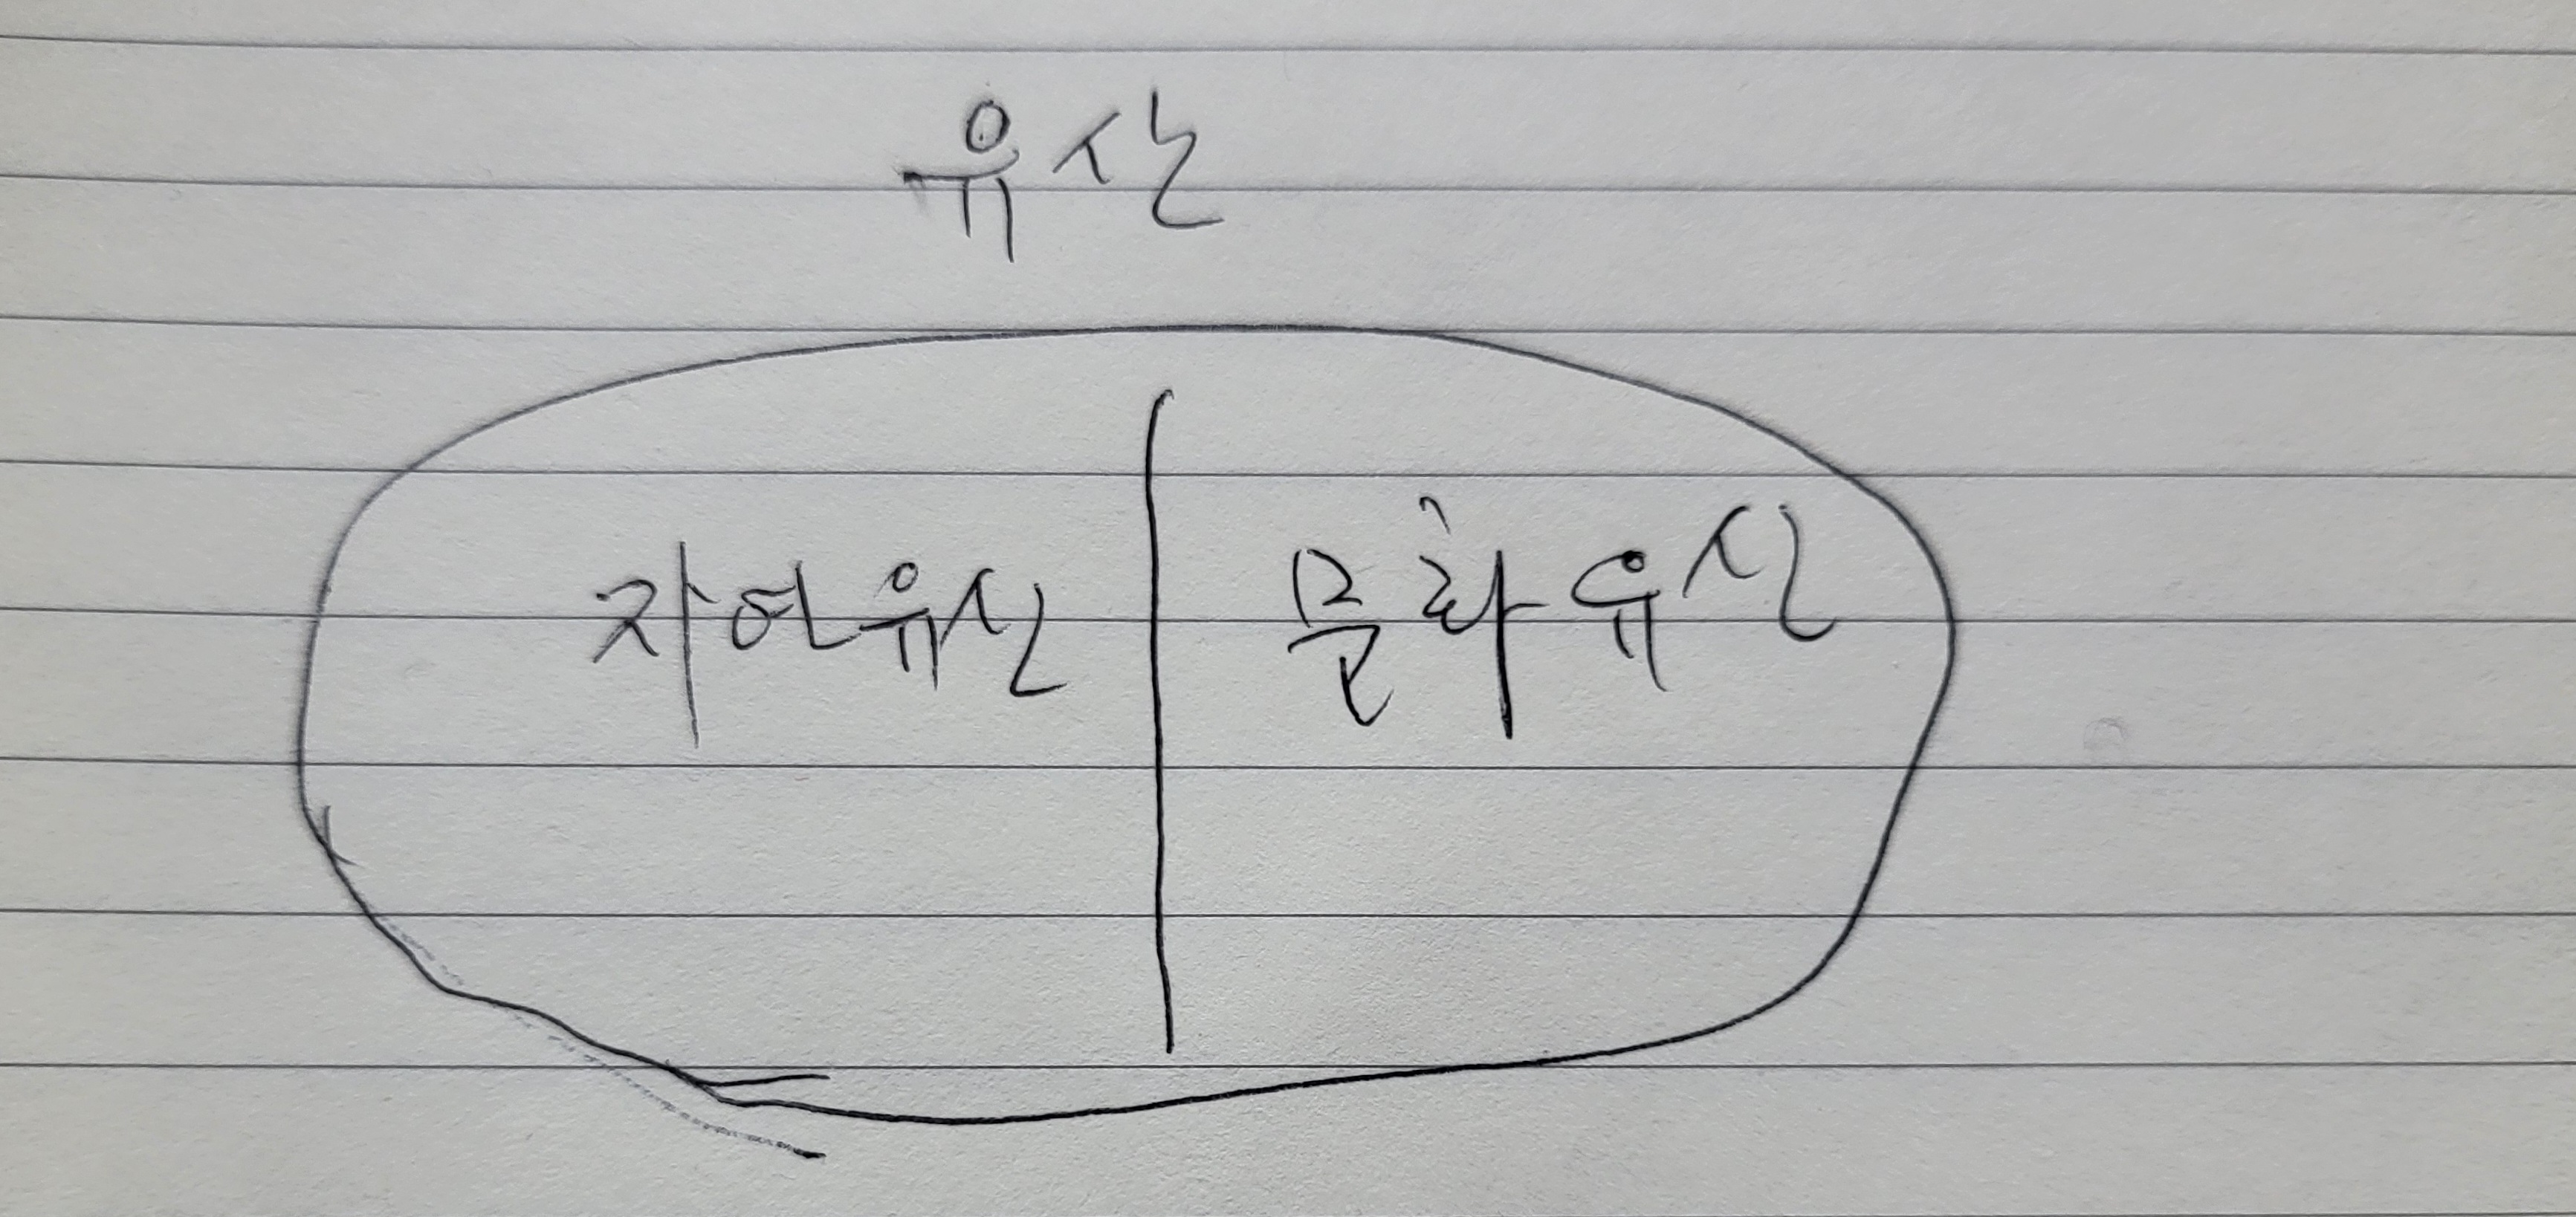 유산
자연유산
문화유산